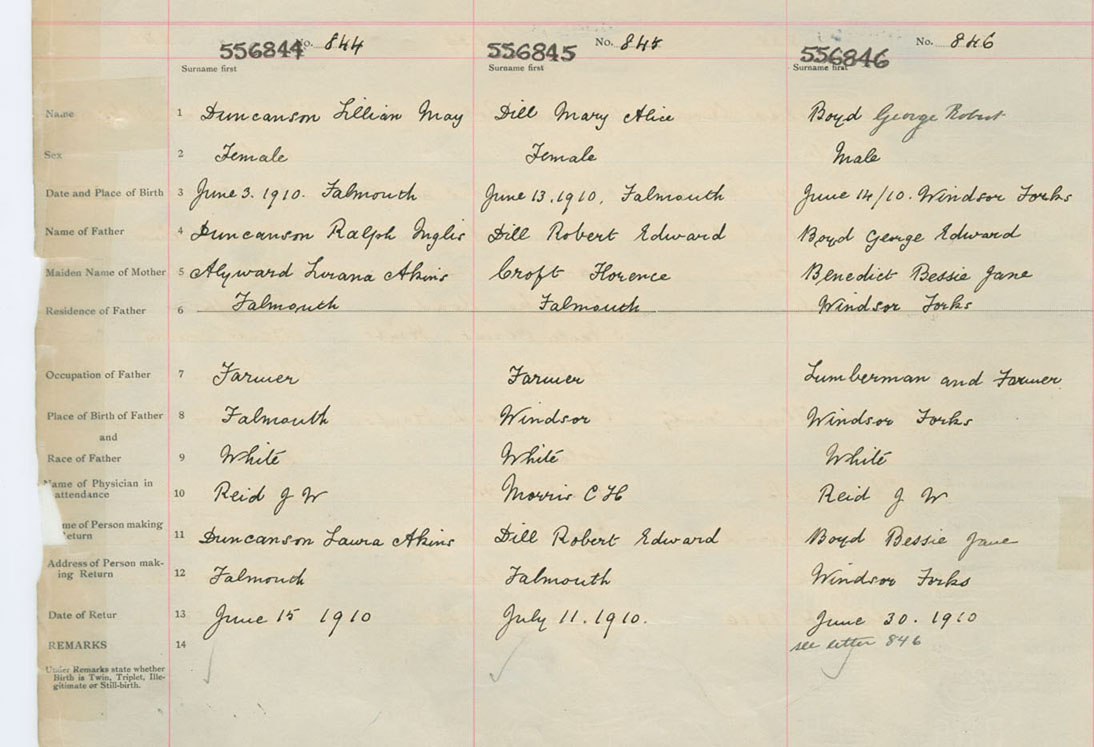 556844 No. 844 556845 No. 845 556846 No. 846
Surname first Surname first Surname first
Name 1 Duncanson Lillian May Dill Mary Alice Boyd George Robert
Sex 2 Female Female Male
Date and Place of Birth 3 June 3. 1910. Falmouth June 13. 1910, Falmouth June 14/10. Windsor Forks
Name of Father 4 Duncanson Ralph Inglis Dill Robert Edward Boyd George Edward
Maiden Name of Mother 5 Alyward Lurana Akins Croft Florence Benedict Bessie Jane
Residence of Father 6 Falmouth Falmouth Windsor Forks
Occupation of Father 7 Farmer Farmer Lumberman and Farmer
Place of Birth of Father 8 Falmouth Windsor Windsor Forks
and
Race of Father 9 White White White
Name of Physician in
attendance 10 Reid J W Morris C H Reid J W
me of Person making
eturn 11 Duncanson Laura Akins Dill Robert Edward Boyd Bessie Jane
Address of Person mak-
ing Return 12 Falmouth Falmouth Windsor Forks
Date of Retur 13 June 15 1910 July 11. 1910. June 30. 1910
REMARKS 14 see letter 846
Under Remarks state whether
Birth is Twin, Triplet, Ille-
gitimate or Still-birth.